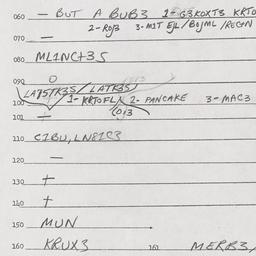 060 — BUT A BUB3 1- G3KOXT3 KRTO
2- ROB3 3- M1T EJL/BOJML/REGEN
070 —
080 ML1NC+35
090 O
LAT5TK3S / LATK3S/
100 1- KRTOFL 2- PANCAKE 3- MAC3
101 +
110 C1BU, LN81C3
120 —
130 +
140 +
150 MUN
160 KRUX3 161 MERB3,